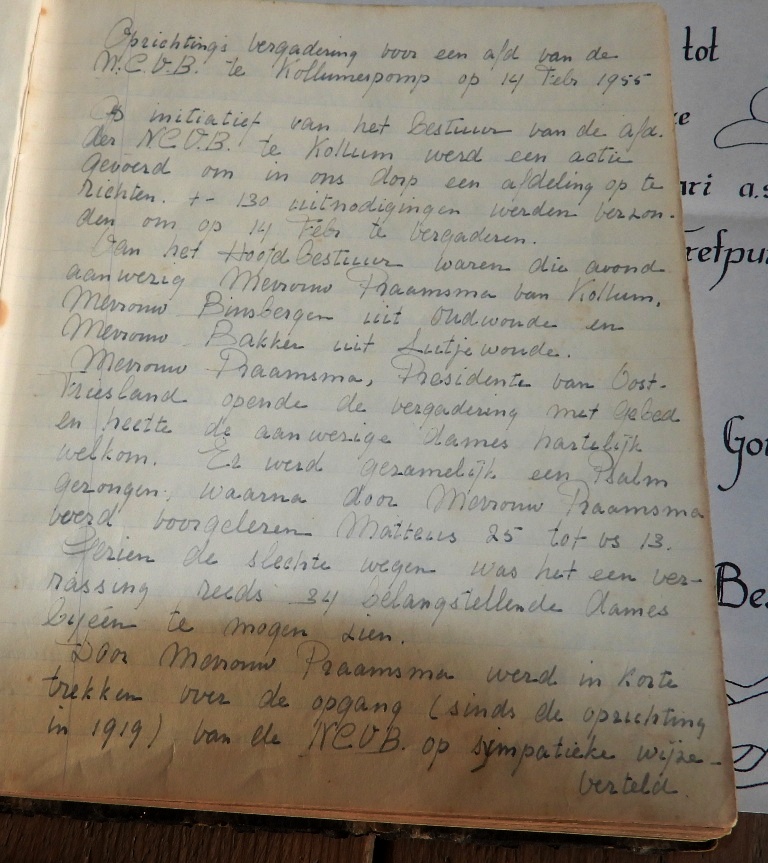 Oprichtings vergadering voor een afd van de
N.C.V.B. te Kollumerpomp op 14 Febr 1955
Op initiatief van het bestuur van de afd.
der N.C.V.B. te Kollum werd een actie
gevoerd om in ons dorp een afdeling op te
richten. +- 130 uitnodigingen werden verzon-
den om op 14 Febr te vergaderen.
Van het Hoofdbestuur waren die avond
aanwezig Mevrouw Praamsma van Kollum,
Mevrouw Binsbergen uit Oudwoude en
Mevrouw Bakker uit Lutjewoude.
Mevrouw Praamsma, Presidente van Oost-
Friesland opende de vergadering met gebed
en heette de aanwezige dames hartelijk
welkom. Er werd gezamelijk een Psalm
gezongen, waarna door Mevrouw Praamsma
werd voorgelezen Matteus 25 tot vs 13.
Gezien de slechte wegen was het een ver-
rassing reeds 34 belangstellende dames
bijeen te mogen zien.
Door Mevrouw Praamsma werd in korte
trekken over de opgang (sinds de oprichting
in 1919) van de N.C.V.B. op simpatieke wijze
verteld.
tot
ari a.s
trefpun
Gou
Bes